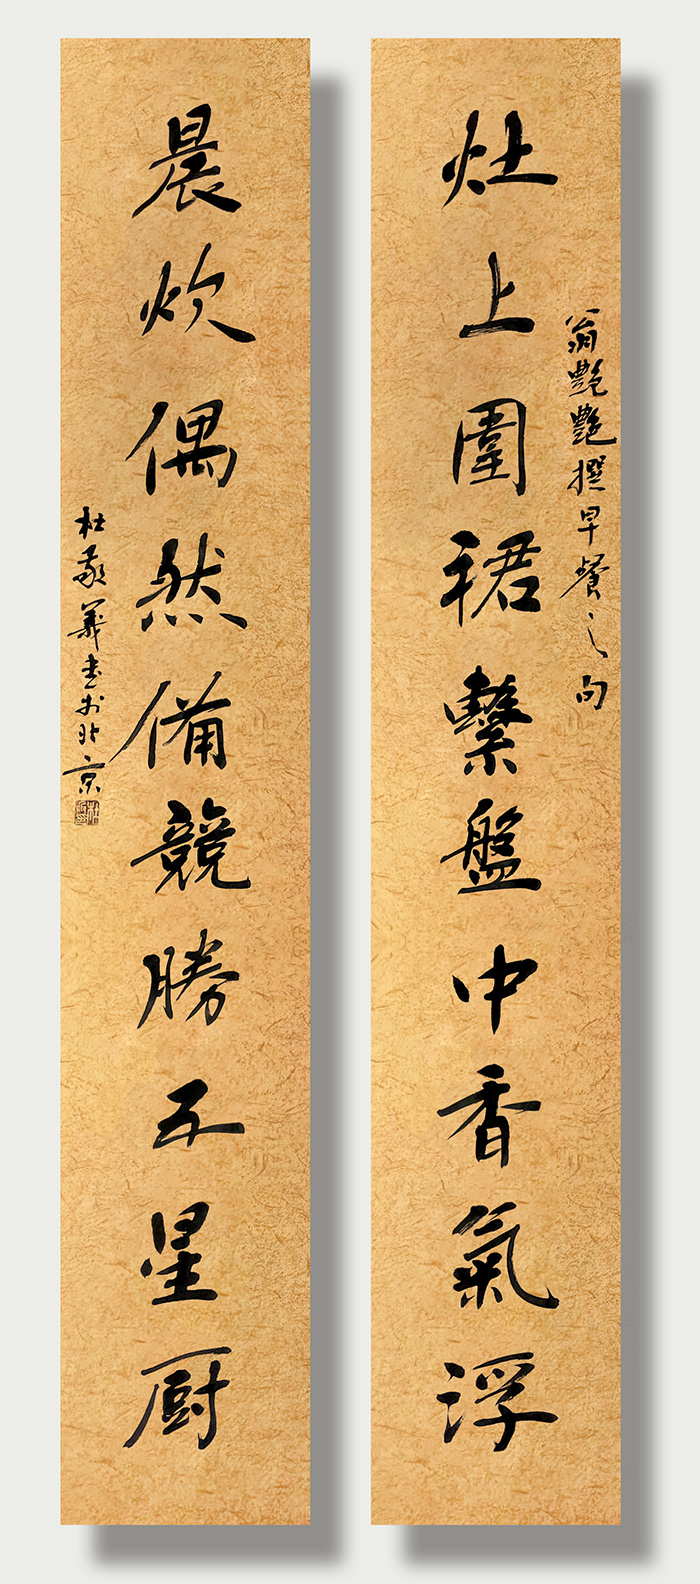 灶上圍裙繫盤中香氣浮
翁艷艷撰早餐之句
晨炊偶然備競勝五星厨
杜敬義書於北京